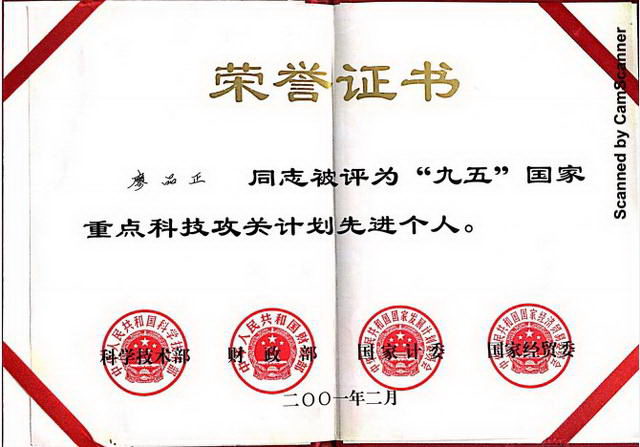 荣誉证书
廖品正 同志被评为“九五”国家
重点科技攻关计划先进个人。
中华人民共和国科学技术部
科学技术部
中华人民共和国财政部
财政部
中华人民共和国国家发展计划委员会
国家计委
中华人民共和国国家经济贸易委员会
国家经贸委
二〇〇一年二月
Scanned by CamScanner